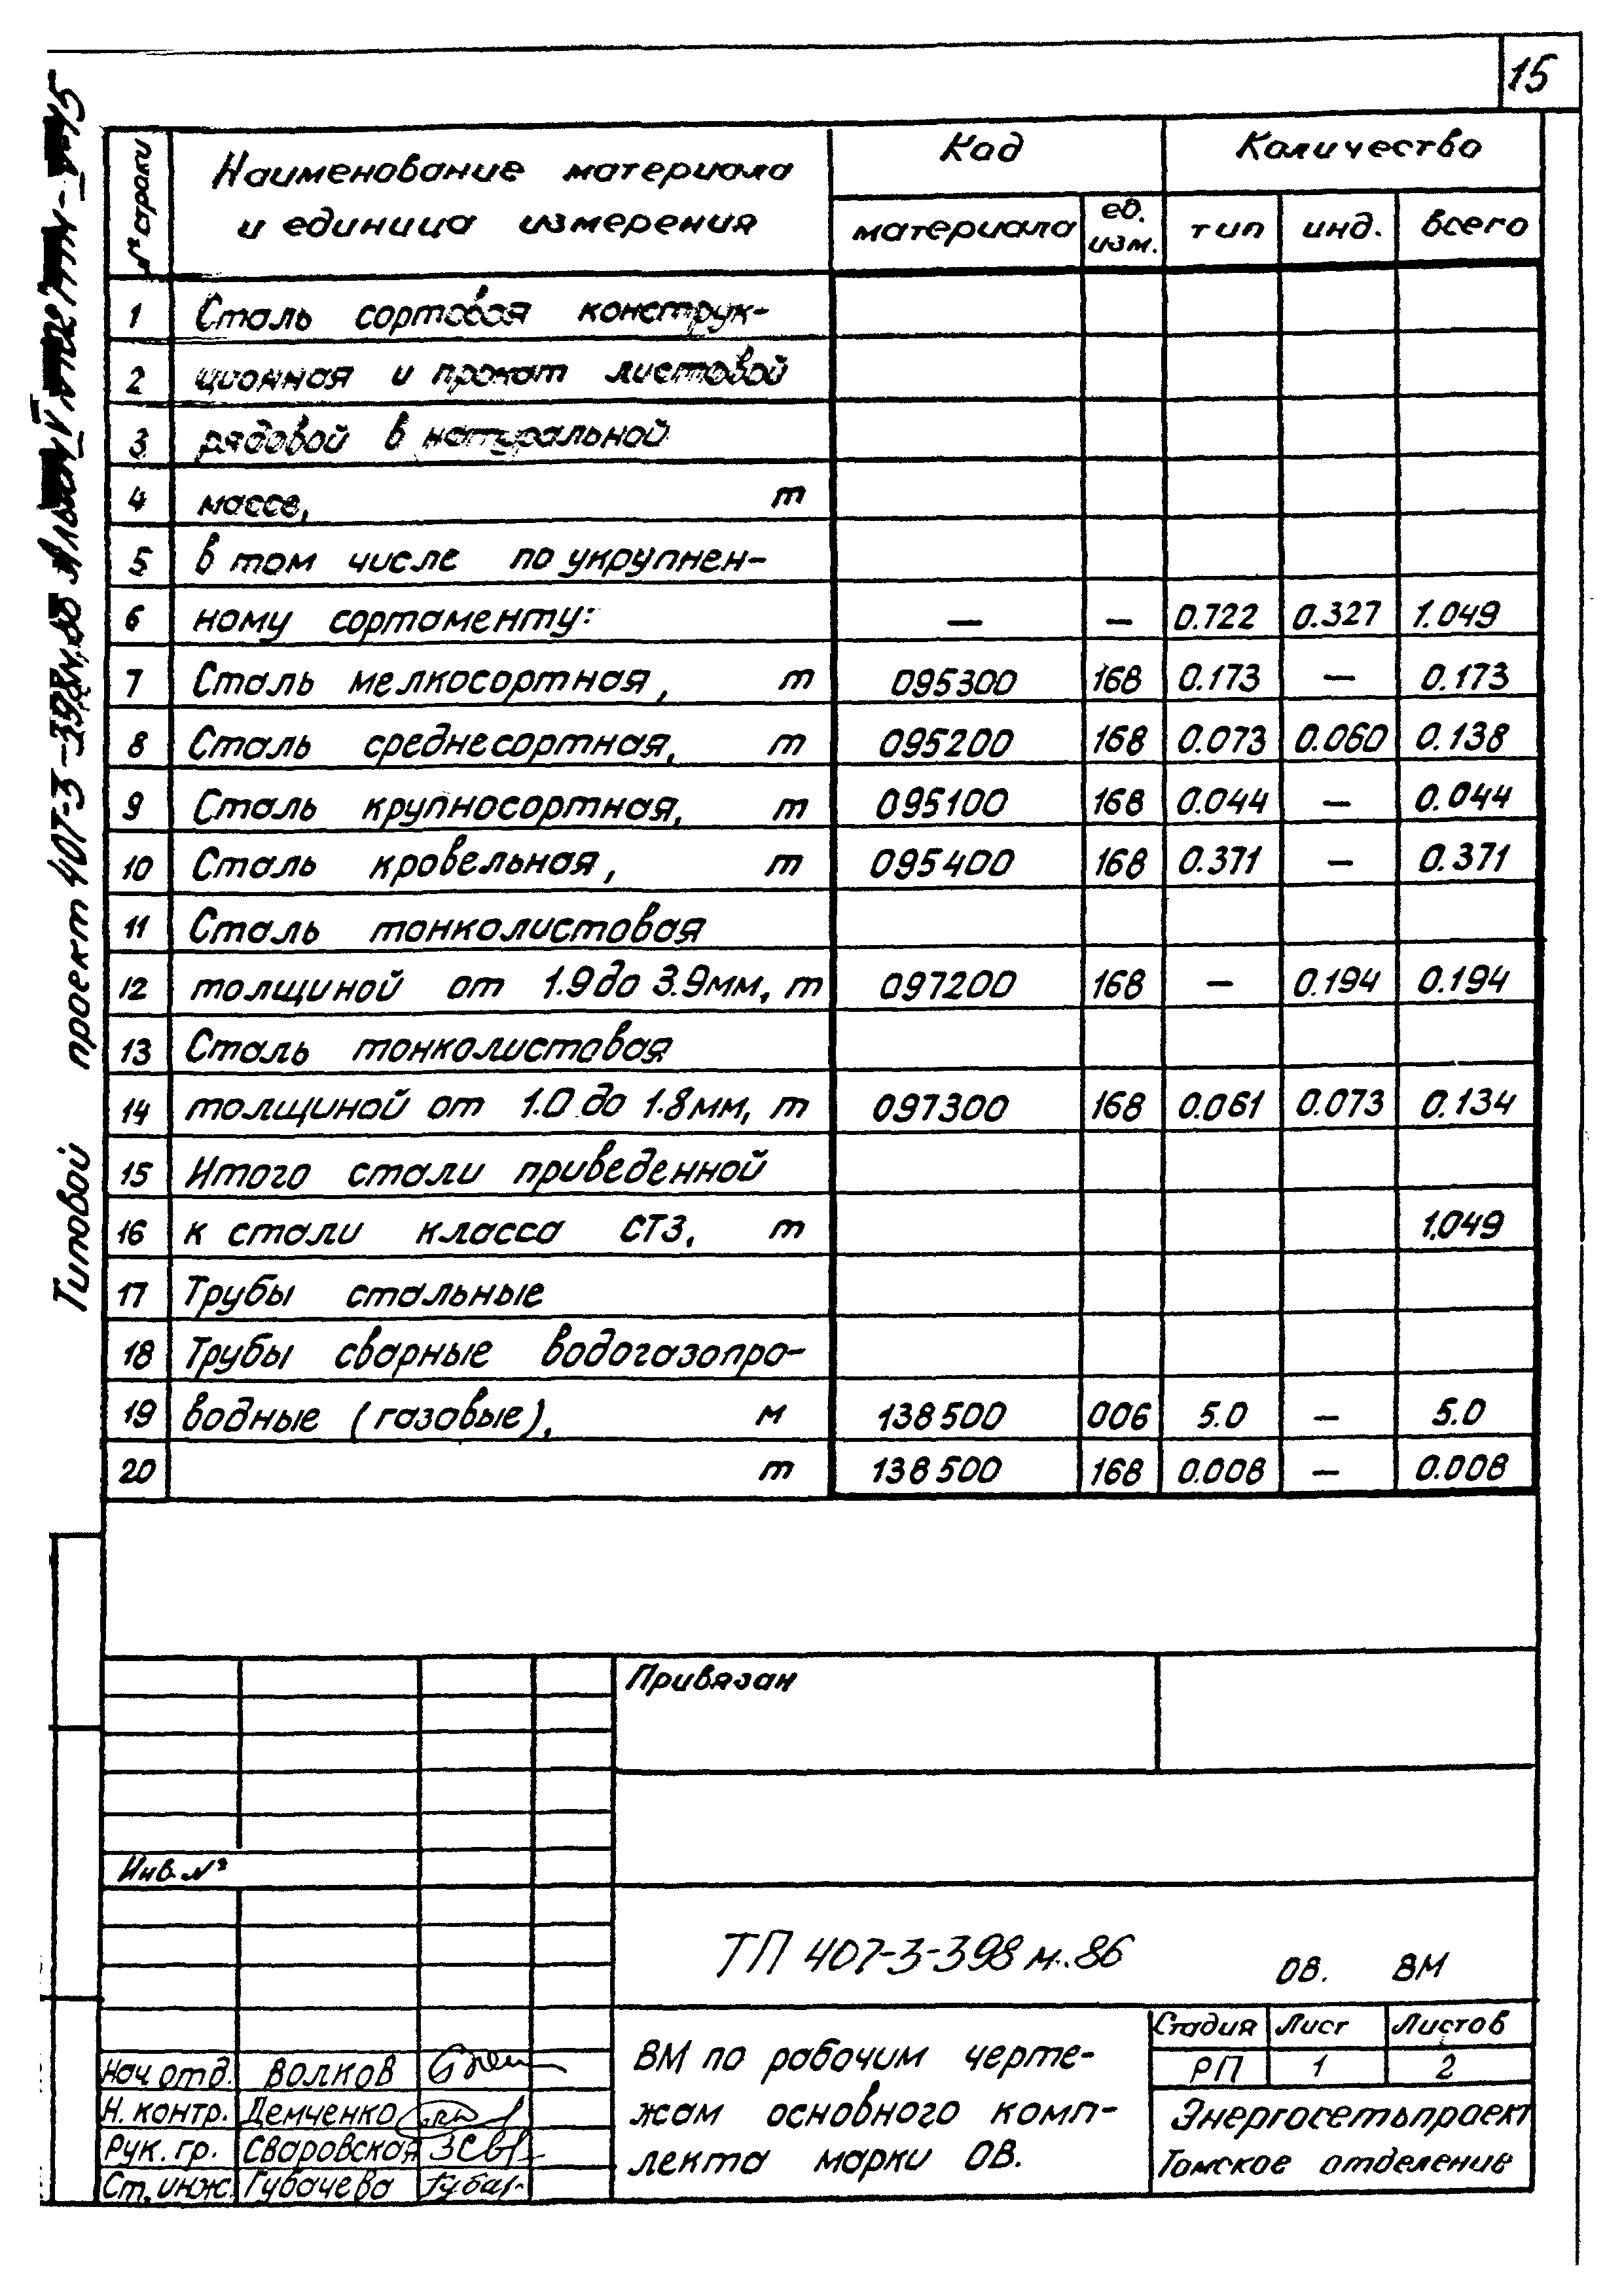 15
Типовой проект 407-3-398м.86 Альбом V
№ строки
Наименование материала
и единица измерения
Код
Количество
материала
ед.
изм.
тип
инд.
всего
1 Сталь сортовая конструк-
2 ционная и прокат листовой
3 рядовой в натуральной
4 массе, т
5 в том числе по укрупнен-
6 ному сортаменту: — — 0.722 0.327 1.049
7 Сталь мелкосортная, т 095300 168 0.173 — 0.173
8 Сталь среднесортная, т 095200 168 0.073 0.060 0.138
9 Сталь крупносортная, т 095100 168 0.044 — 0.044
10 Сталь кровельная, т 095400 168 0.371 — 0.371
11 Сталь тонколистовая
12 толщиной от 1.9 до 3.9мм, т 097200 168 — 0.194 0.194
13 Сталь тонколистовая
14 толщиной от 1.0 до 1.8мм, т 097300 168 0.061 0.073 0.134
15 Итого стали приведенной
16 к стали класса СТ3, т 1.049
17 Трубы стальные
18 Трубы сварные водогазопро-
19 водные (газовые), м 138500 006 5.0 — 5.0
20 т 138500 168 0.008 — 0.008
Привязан
Инв.№
ТП 407-3-398м.86 ОВ. ВМ
ВМ по рабочим черте-
жам основного комп-
лекта марки ОВ.
Стадия Лист Листов
РП 1 2
Энергосетьпроект
Томское отделение
Нач.отд. Волков
Н. контр. Демченко
Рук. гр. Сваровская
Ст. инж. Губачева